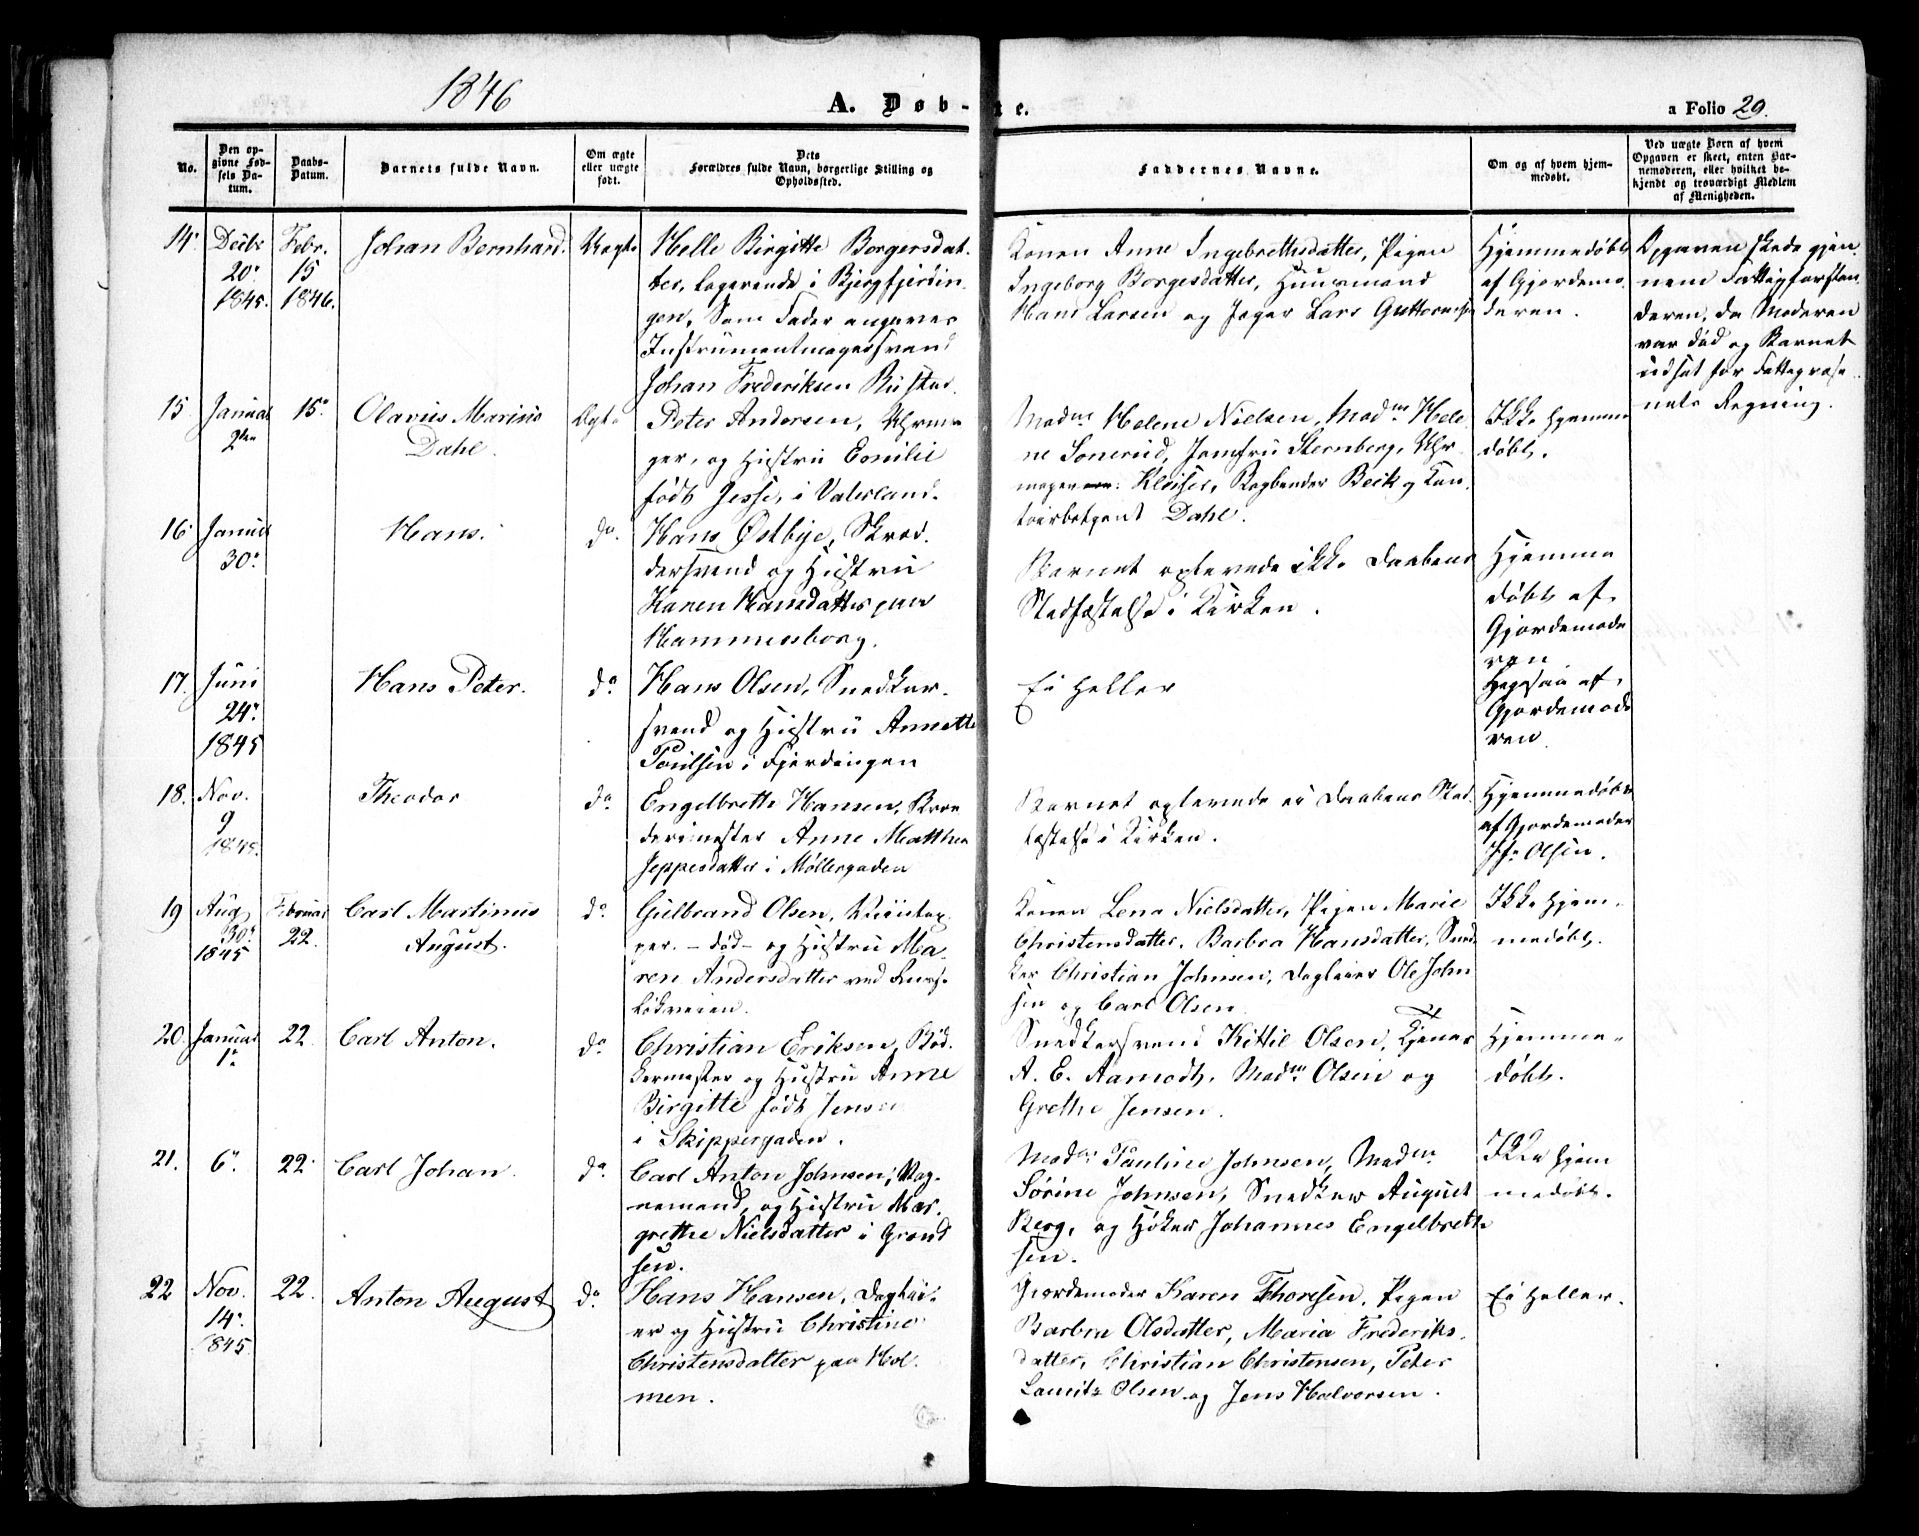 1846
A. Døb-te.
a Folio 29.
No.
Den op-
givne Fød-
sels Da-
tum.
Daabs-
Datum.
Barnets fulde Navn.
Om ægte
eller uægte
født.
Dets
Forældres fulde Navn, borgerlige Stilling og
Opholdssted.
Faddernes Navne.
Om og af hvem hjem-
medøbt.
Ved uægte Børn af hvem
Opgaven er skeet, enten Bar-
nemoderen, eller hvilket be-
kjendt og troværdigt Medlem
af Menigheden.
14.
Decbr
20.
1845.
Febr.
15
1846.
Johan Bernhard.
Uægte
Helle Birgitte Borgersdat-
ter, Logerende i Bjergfjerdin-
gen, Som Fader angaves
Instrumentmagersvend
Johan Frederiksen Rustad.
Konen Anne Ingebrethsdatter, Pigen
Ingeborg Borgesdatter, Huusmand
Hans Larsen og Jæger Lars Guttormsen
Hjemmedøbt
af Gjordemo-
deren.
Opgaven skede gjen-
nem Fattigforstan-
deren, da Moderen
var død og Barnet
udsat for Fattigvæse-
nets Regning.
15
Januar
2den
15.
Olavius Marius
Dahl.
Ægte
Peter Andersen, Uhrma-
ger, og Hustru Emilie
født Jesse, i Vaterland.
Madm Helene Nielsen, Madm Hele-
ne Sonerud, Jomfru Sternberg, Uhr-
mager Kleiser, Bogbinder Beck og Con-
toirbetjent Dahl.
Ikke hjemme-
døbt.
16.
Januar
30.
Hans.
do.
Hans Østbye, Skræd-
dersvend og Hustru
Karen Hansdatter paa
Hammersborg.
Barnet oplevede ikke Daabens
Stadfæstelse i Kirken.
Hjemme
døbt af
Gjordemode
ren
17.
Juni
24.
1845
Hans Peter.
do.
Hans Olsen, Snedker-
svend og Hustru Annette
Poulsen i Fjerdingen
Ei heller
Ligesaa af
Gjordemode
ren.
18.
Nov.
9
1845.
Theodor
do
Engelbreth Hansen,
Anne Matthea
Jeppesdatter i Møllergaden
Barnet oplevede ei Daabens Stad-
fæstelse i Kirken.
Hjemmedøbt
af Gjordemoder
Olsen.
19
Aug
30.
1845
Februar
22.
Carl Martinus
August.
do.
Gulbrand Olsen, Viintap-
per. - død - og Hustru Ma-
ren Andersdatter ved Ruse-
løkveien.
Konen Lena Nielsdatter, Pigen Marie
Christensdatter, Barbra Hansdatter, Sned-
ker Christian Johnsen, Dagleier Ole John
sen og Carl Olsen
Ikke hjem-
medøbt.
20.
Januar
1.
22.
Carl Anton.
do.
Christian Eriksen, Bød-
kermester og Hustru Anne
Birgitte født Jensen
i Skippergaden.
Snedkersvend Kittil Olsen, Tjener
A. E. Aamodt, Madm Olsen og
Grethe Jensen.
Hjemme-
døbt.
21.
6.
22.
Carl Johan.
do.
Carl Anton Johnsen, Vog-
nmand, og Hustru Mar-
grethe Nielsdatter i Grænd
sen.
Madm Pauline Johnsen, Madm
Sørine Johnsen, Snedker August
Berg, og Høker Johannes Engelbreth
sen.
Ikke hjem
medøbt.
22
Nov.
14.
1845.
22.
Anton August
do.
Hans Hansen, Daglei-
er og Hustru Christine
Christensdatter paa Hol-
men.
Gjordemoder Karen Thoresen, Pigen
Barbra Olsdatter, Maria Frederiks-
datter, Christian Christensen, Peter
Lauritz Olsen og Jens Halvorsen.
Ei heller.